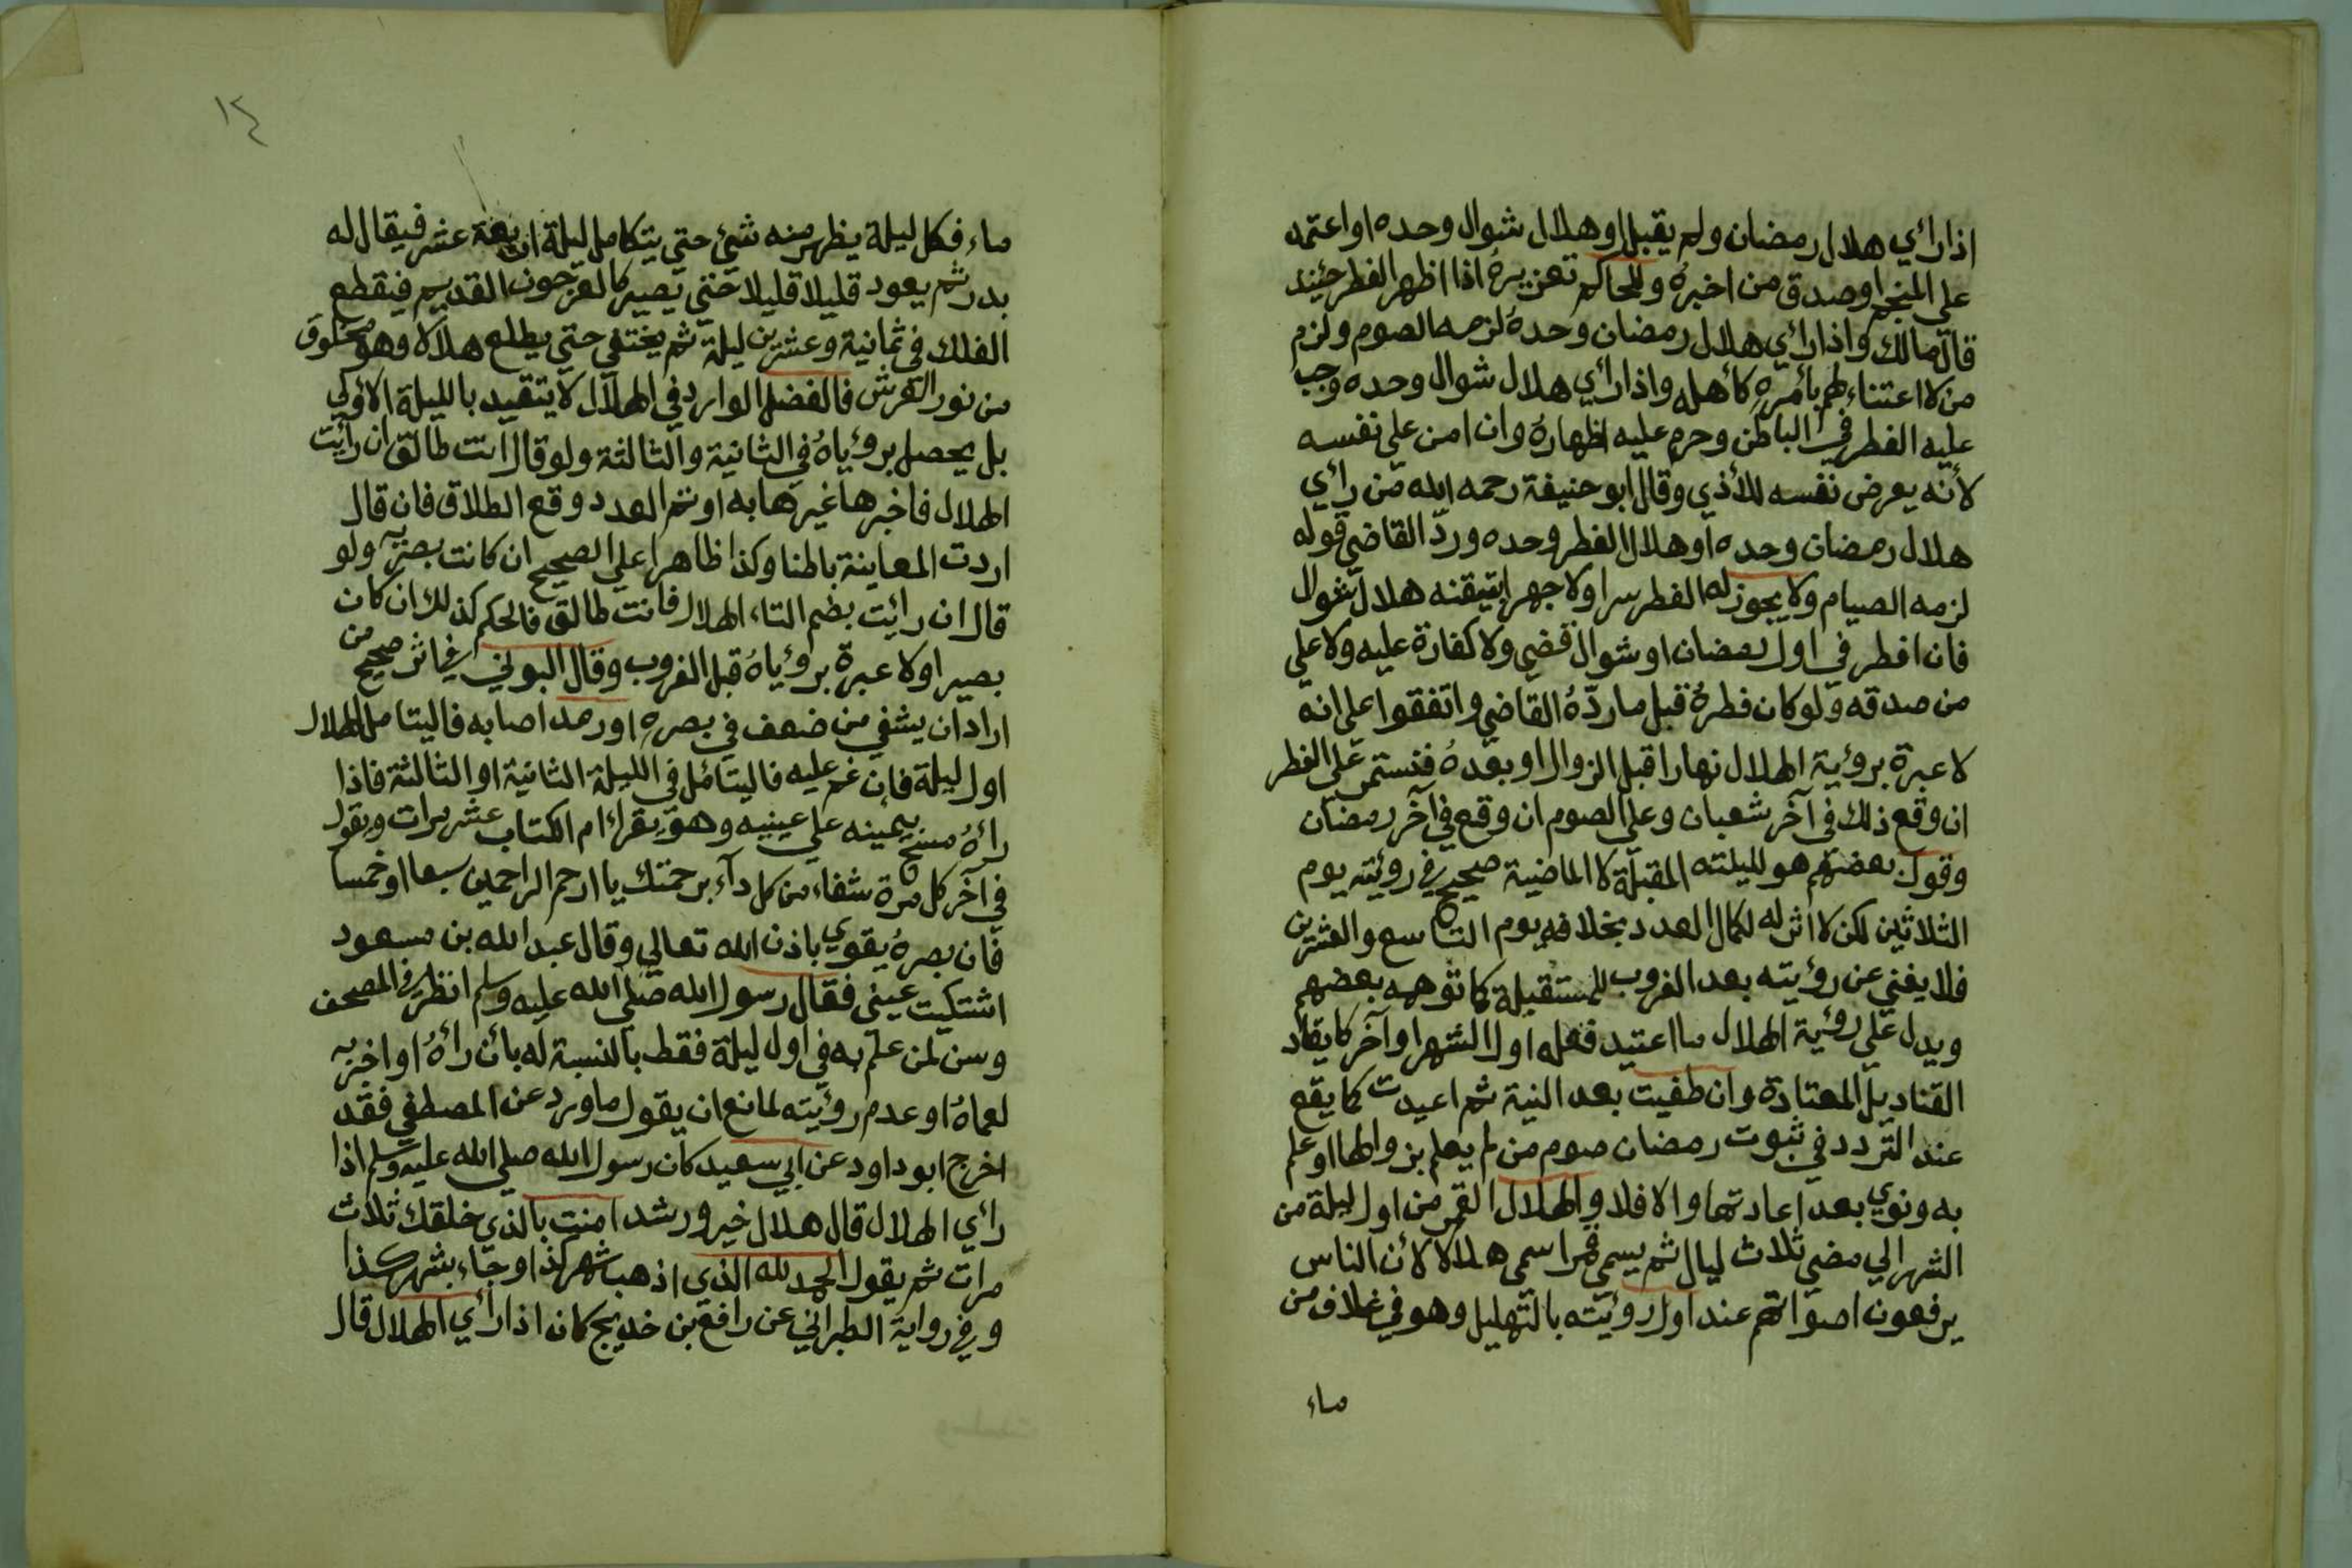 اذا رأي هلال رمضان ولم يقبل او هلال شوال وحده او اعتمد
علي المنجم او صدق من اخبره وللحاكم تعزيره اذا اظهر الفطر حينئذ
قال مالك واذا رأي هلال رمضان وحده لزمه الصوم ولزم
من لا اعتناء لهم بأمره كأهله واذا رأي هلال شوال وحده وجب
عليه الفطر في الباطن وحرم عليه اظهاره وان امن علي نفسه
لأنه يعرض نفسه للأذي وقال ابو حنيفة رحمه الله من رأي
هلال رمضان وحده او هلال الفطر وحده وردّ القاضي قوله
لزمه الصيام ولا يجوز له الفطر سرا ولا جهرا بتيقنه هلال شوال
فان افطر في اول رمضان او شوال قضي ولا كفارة عليه ولا علي
من صدقه ولو كان فطره قبل ما ردّه القاضي واتفقوا علي انه
لا عبرة برؤية الهلال نهارا قبل الزوال او بعده فنستمر علي الفطر
ان وقع ذلك في آخر شعبان وعلي الصوم ان وقع في آخر رمضان
وقول بعضهم هو لليلته المقبلة لا الماضية صحيح في رؤيته يوم
الثلاثين لكن لا اثر له لكمال العدد بخلافه يوم التاسع والعشرين
فلا يغني عن رؤيته بعد الغروب للمستقبلة كما توهمه بعضهم
ويدل علي رؤية الهلال ما اعتيد فعله اول الشهر او آخر كايقاد
القناديل المعتادة وان طفيت بعد النية ثم اعيدت كما يقع
عند التردد في ثبوت رمضان صوم من لم يعلم بزوالها او علم
به ونوي بعد اعادتها والا فلا والهلال القمر من اول ليلة من
الشهر الي مضي ثلاث ليال ثم يسمي قمرا سمي هلالا لأن الناس
يرفعون اصواتهم عند اول رؤيته بالتهليل وهو في غلاف من
ماء
١٤
ماء فكل ليلة يظهر منه شئ حتي يتكامل ليلة اربعة عشر فيقال له
بدر ثم يعود قليلا قليلا حتي يصير كالعرجون القديم فيقطع
الفلك في ثمانية وعشرين ليلة ثم يختفي حتي يطلع هلالا وهو مخلوق
من نور العرش فالفضل الوارد في الهلال لا يتقيد بالليلة الاولي
بل يحصل برؤياه في الثانية والثالثة ولو قال انت طالق ان رأيت
الهلال فاخبرها غيرها به او تم العدد وقع الطلاق فان قال
اردت المعاينة باطنا وكذا ظاهرا علي الصحيح ان كانت بصيرة ولو
قال ان رايت بضم التاء الهلال فانت طالق فالحكم كذلك ان كان
بصيرا ولا عبرة برؤياه قبل الغروب وقال البوني في اثر صحيح من
اراد ان يشفي من ضعف في بصره او رمد اصابه فاليتامل الهلال
اول ليلة فان غم عليه فاليتامل في الليلة الثانية او الثالثة فاذا
رأه مسح بيمينه علي عينيه وهو يقراء ام الكتاب عشر مرات ويقول
في آخر كل مرة شفاء من كل داء برحمتك يا ارحم الراحمين سبعا او خمسا
فان بصره يقوي باذن الله تعالي وقال عبد الله بن مسعود
اشتكيت عيني فقال رسول الله صلي الله عليه وسلم انظر في المصحف
وسن لمن علم به في اول ليلة فقط بالنسبة له بأن رأه او اخبر به
لعماه او عدم رؤيته لمانع ان يقول ما ورد عن المصطفي فقد
اخرج ابو داود عن ابي سعيد كان رسول الله صلي الله عليه وسلم اذا
رأي الهلال قال هلال خير ورشد امنت بالذي خلقك ثلاث
مرات ثم يقول الحمد لله الذي اذهب شهر كذا وجاء بشهر كذا
وفي رواية الطبراني عن رافع بن خديج كان اذا رأي الهلال قال